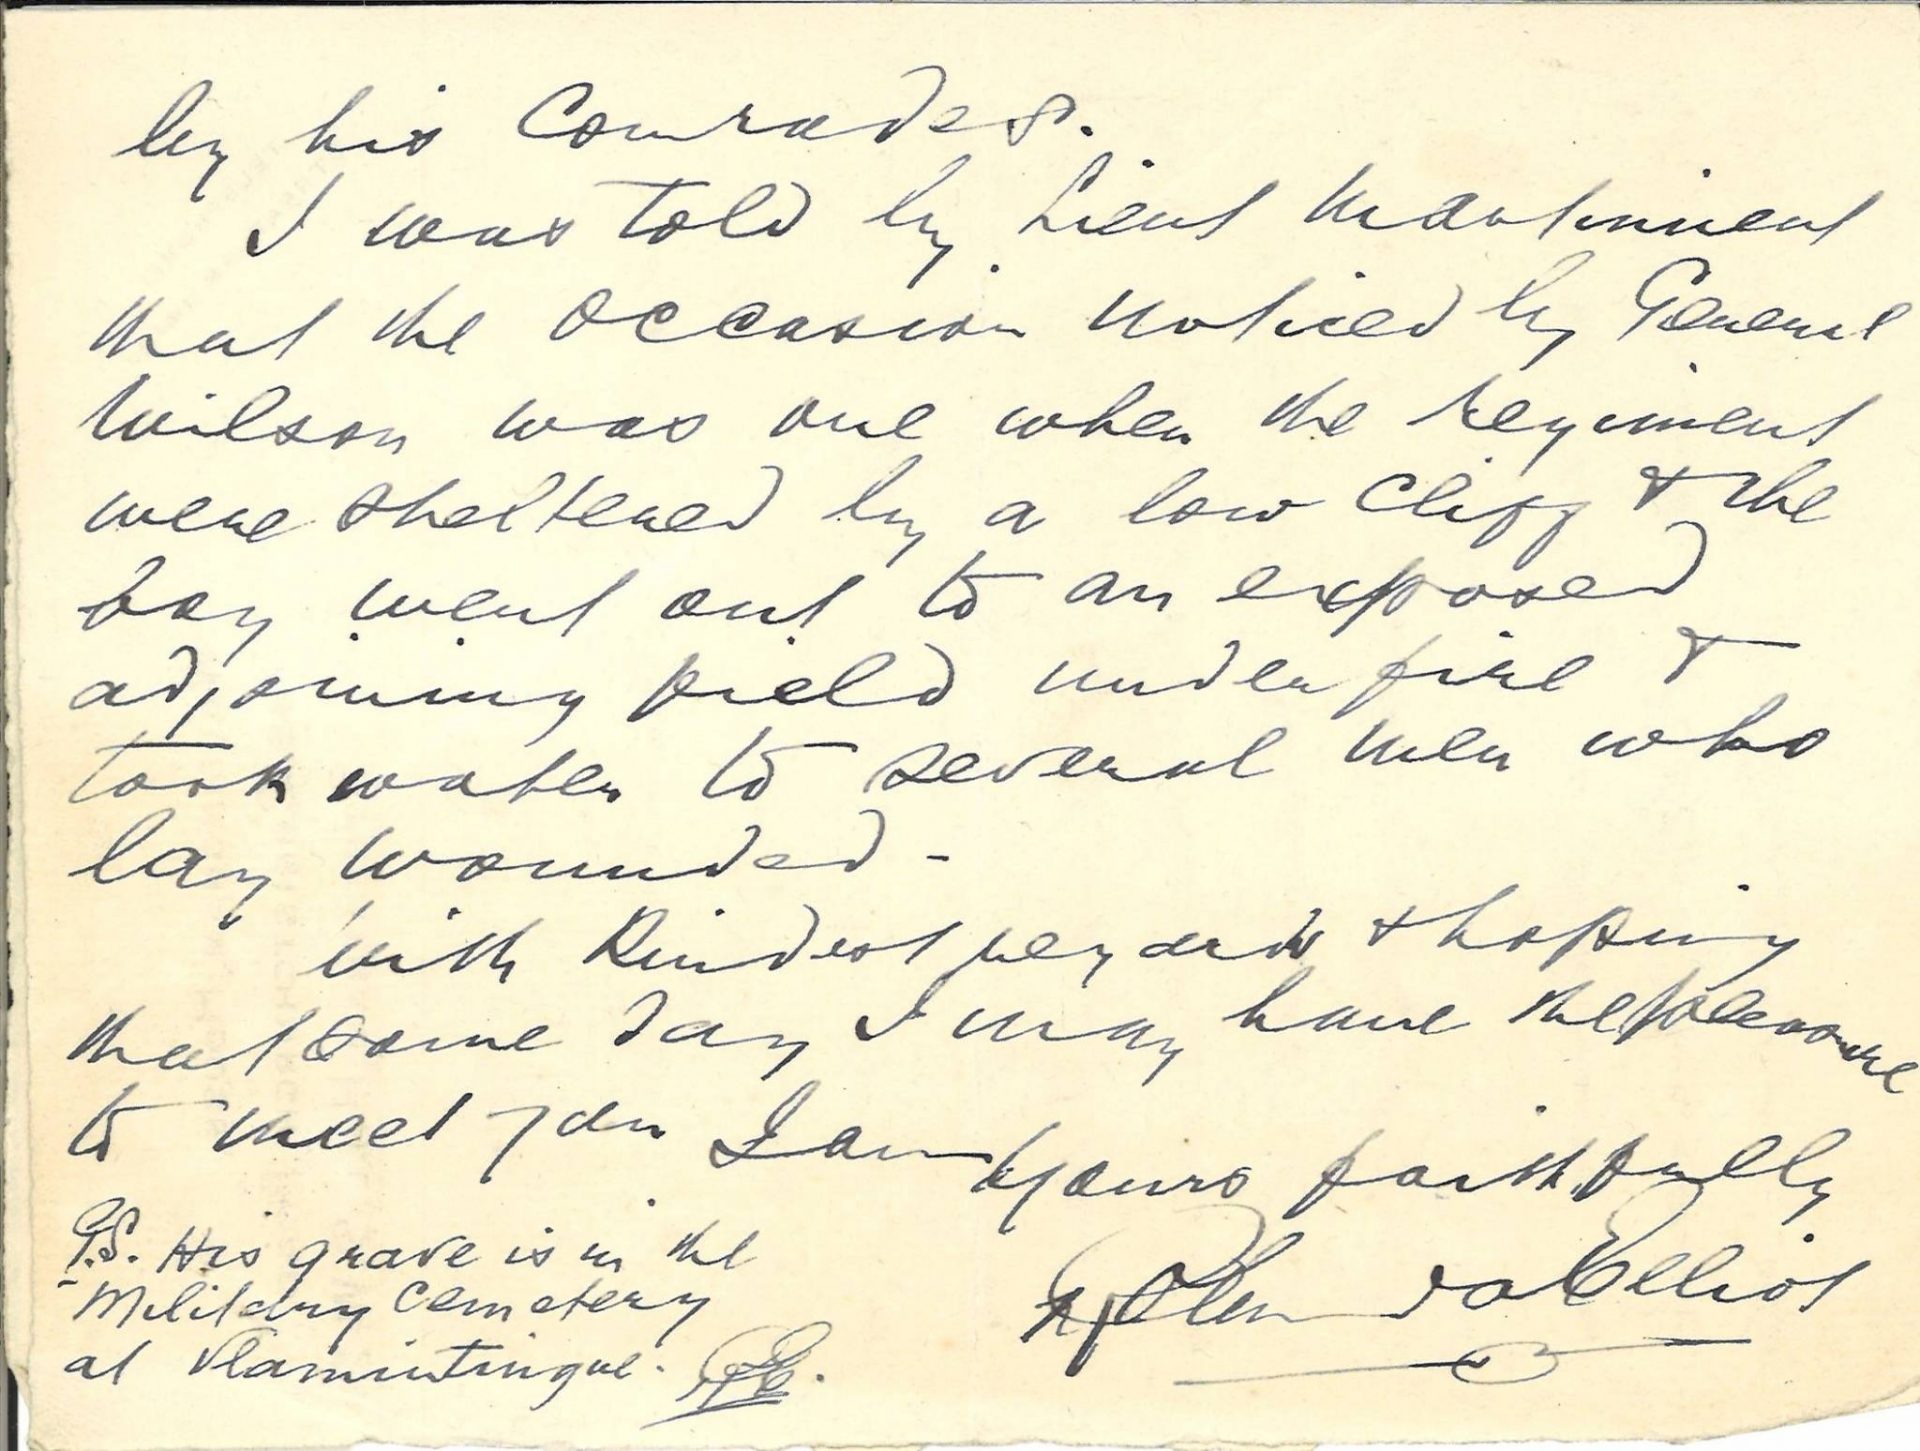 by his Comrades.
I was told by Lieut Martiment
that the occasion noticed by General
Wilson was one when the regiment
were sheltered by a low Cliff & the
boy went out to an exposed
adjoining field under fire &
took water to several men who
lay wounded -
With Kindest regards & hoping
that some day I may have the pleasure
to meet you I am Yours faithfully
P.S. His grave is in the
Military Cemetery
at Vlamintingue.